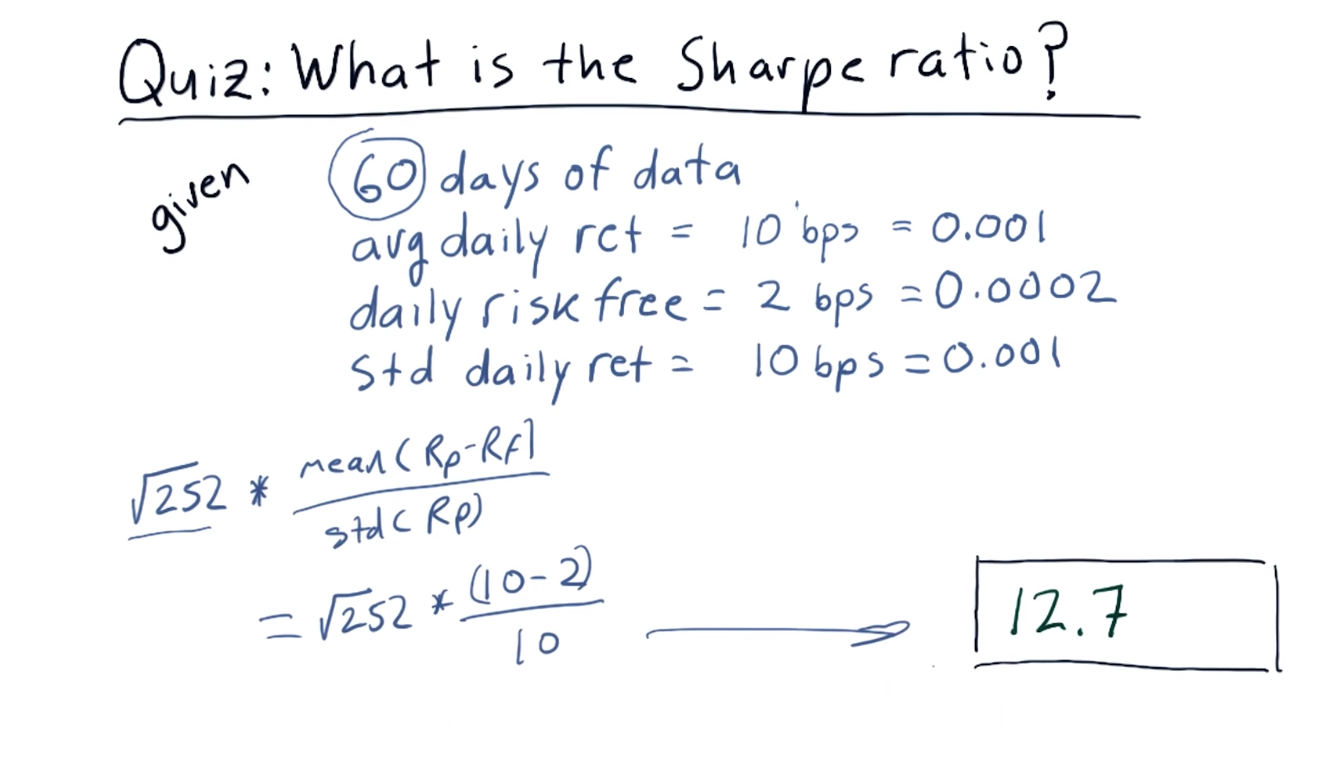 Quiz: What is the Sharpe ratio?
given
60 days of data
avg daily ret = 10 bps = 0.001
daily risk free = 2 bps = 0.0002
std daily ret = 10 bps = 0.001
√252 * mean(Rp-Rf) / std(Rp)
= √252 * (10-2) / 10
12.7